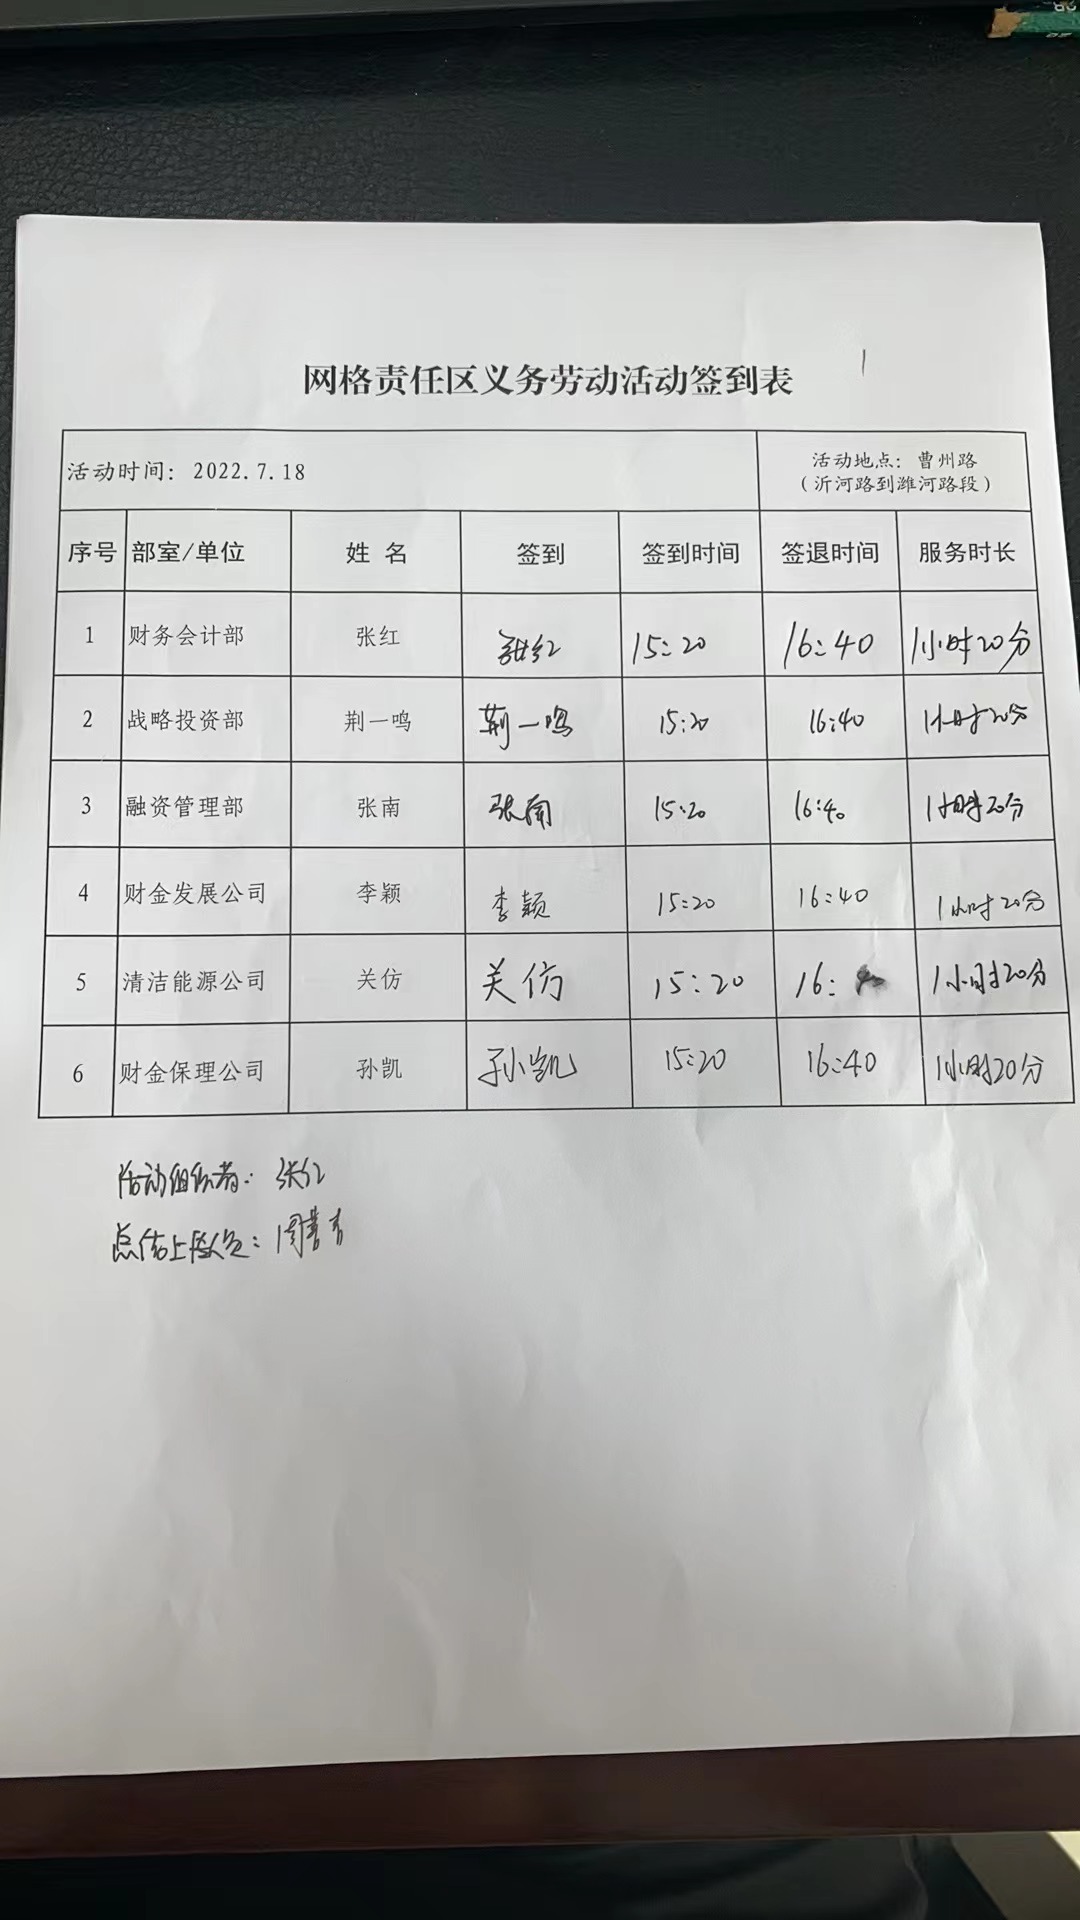 网格责任区义务劳动活动签到表
活动时间：2022.7.18 活动地点：曹州路
（沂河路到潍河路段）
序号 部室/单位 姓 名 签到 签到时间 签退时间 服务时长
1 财务会计部 张红 张红 15:20 16:40 1小时20分
2 战略投资部 荆一鸣 荆一鸣 15:20 16:40 1小时20分
3 融资管理部 张南 张南 15:20 16:40 1小时20分
4 财金发展公司 李颖 李颖 15:20 16:40 1小时20分
5 清洁能源公司 关仿 关仿 15:20 16: 1小时20分
6 财金保理公司 孙凯 孙凯 15:20 16:40 1小时20分
活动组织者：张红